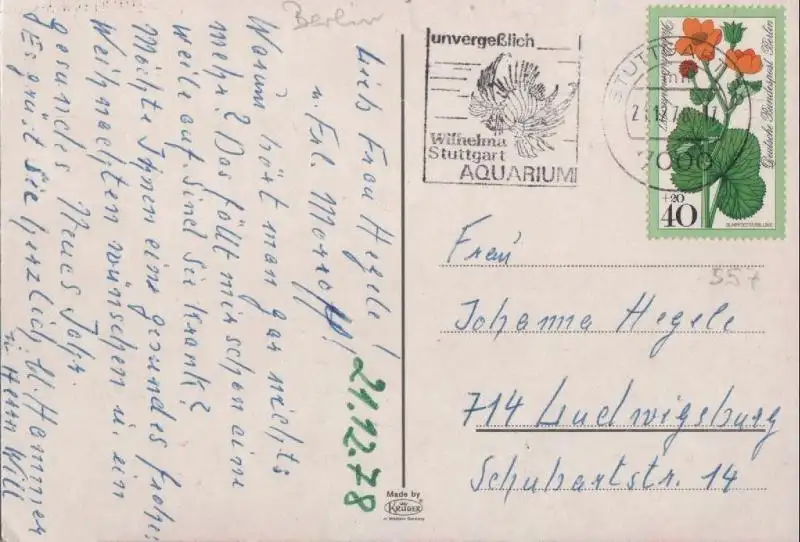 Berlin
Lieb Frau Hegele!
u. Frl.
Warum hört man gar nichts
mehr? Das fällt mir schon eine
weile auf. Sind Sie krank?
Möchte Ihnen eine gesundes frohes
Weihnachten wünschen u. ein
gesundes Neues Jahr.
Es grüst Sie herzlich U. Hammer
u. Herrn Will
21.12.78
unvergeßlich
Wilhelma
Stuttgart
AQUARIUM
STUTTGART
7000
Deutsche Bundespost Berlin
+20
40
SUMPFDOTTERBLUME
557
Frau
Johanna Hegele
714 Ludwigsburg
Schubartstr. 14
Made by
KRÜGER
in Western Germany